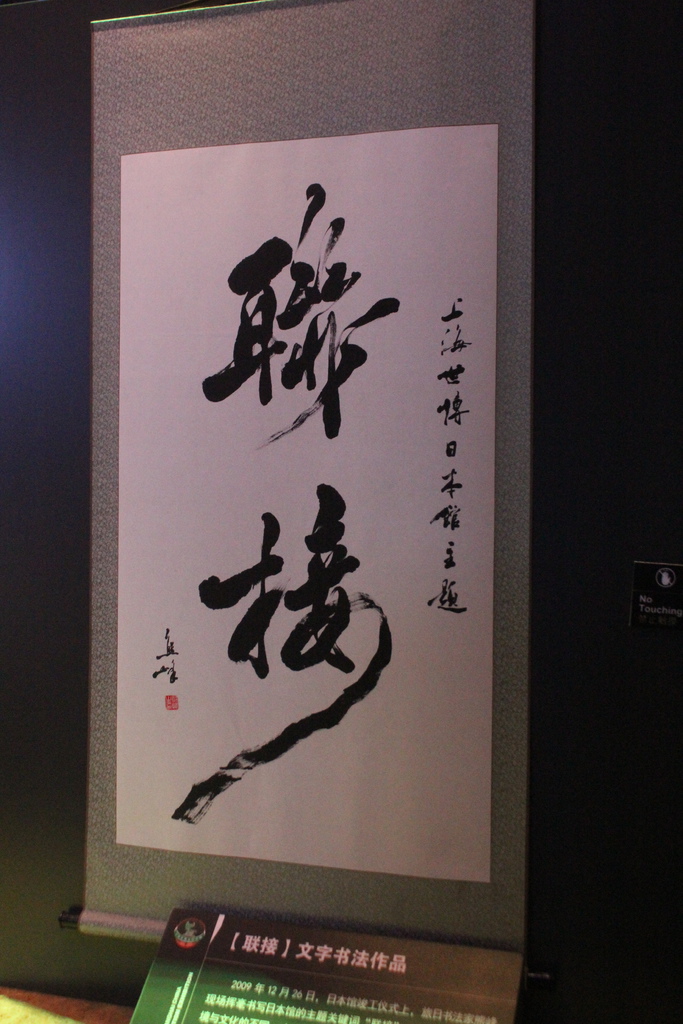 聯接
上海世博日本館主題
No
Touching
禁止触摸
【联接】文字书法作品
2009 年 12 月 26 日，日本馆竣工仪式上，旅日书法家熊峰
现场挥毫书写日本馆的主题关键词“联接”
境与文化的不同